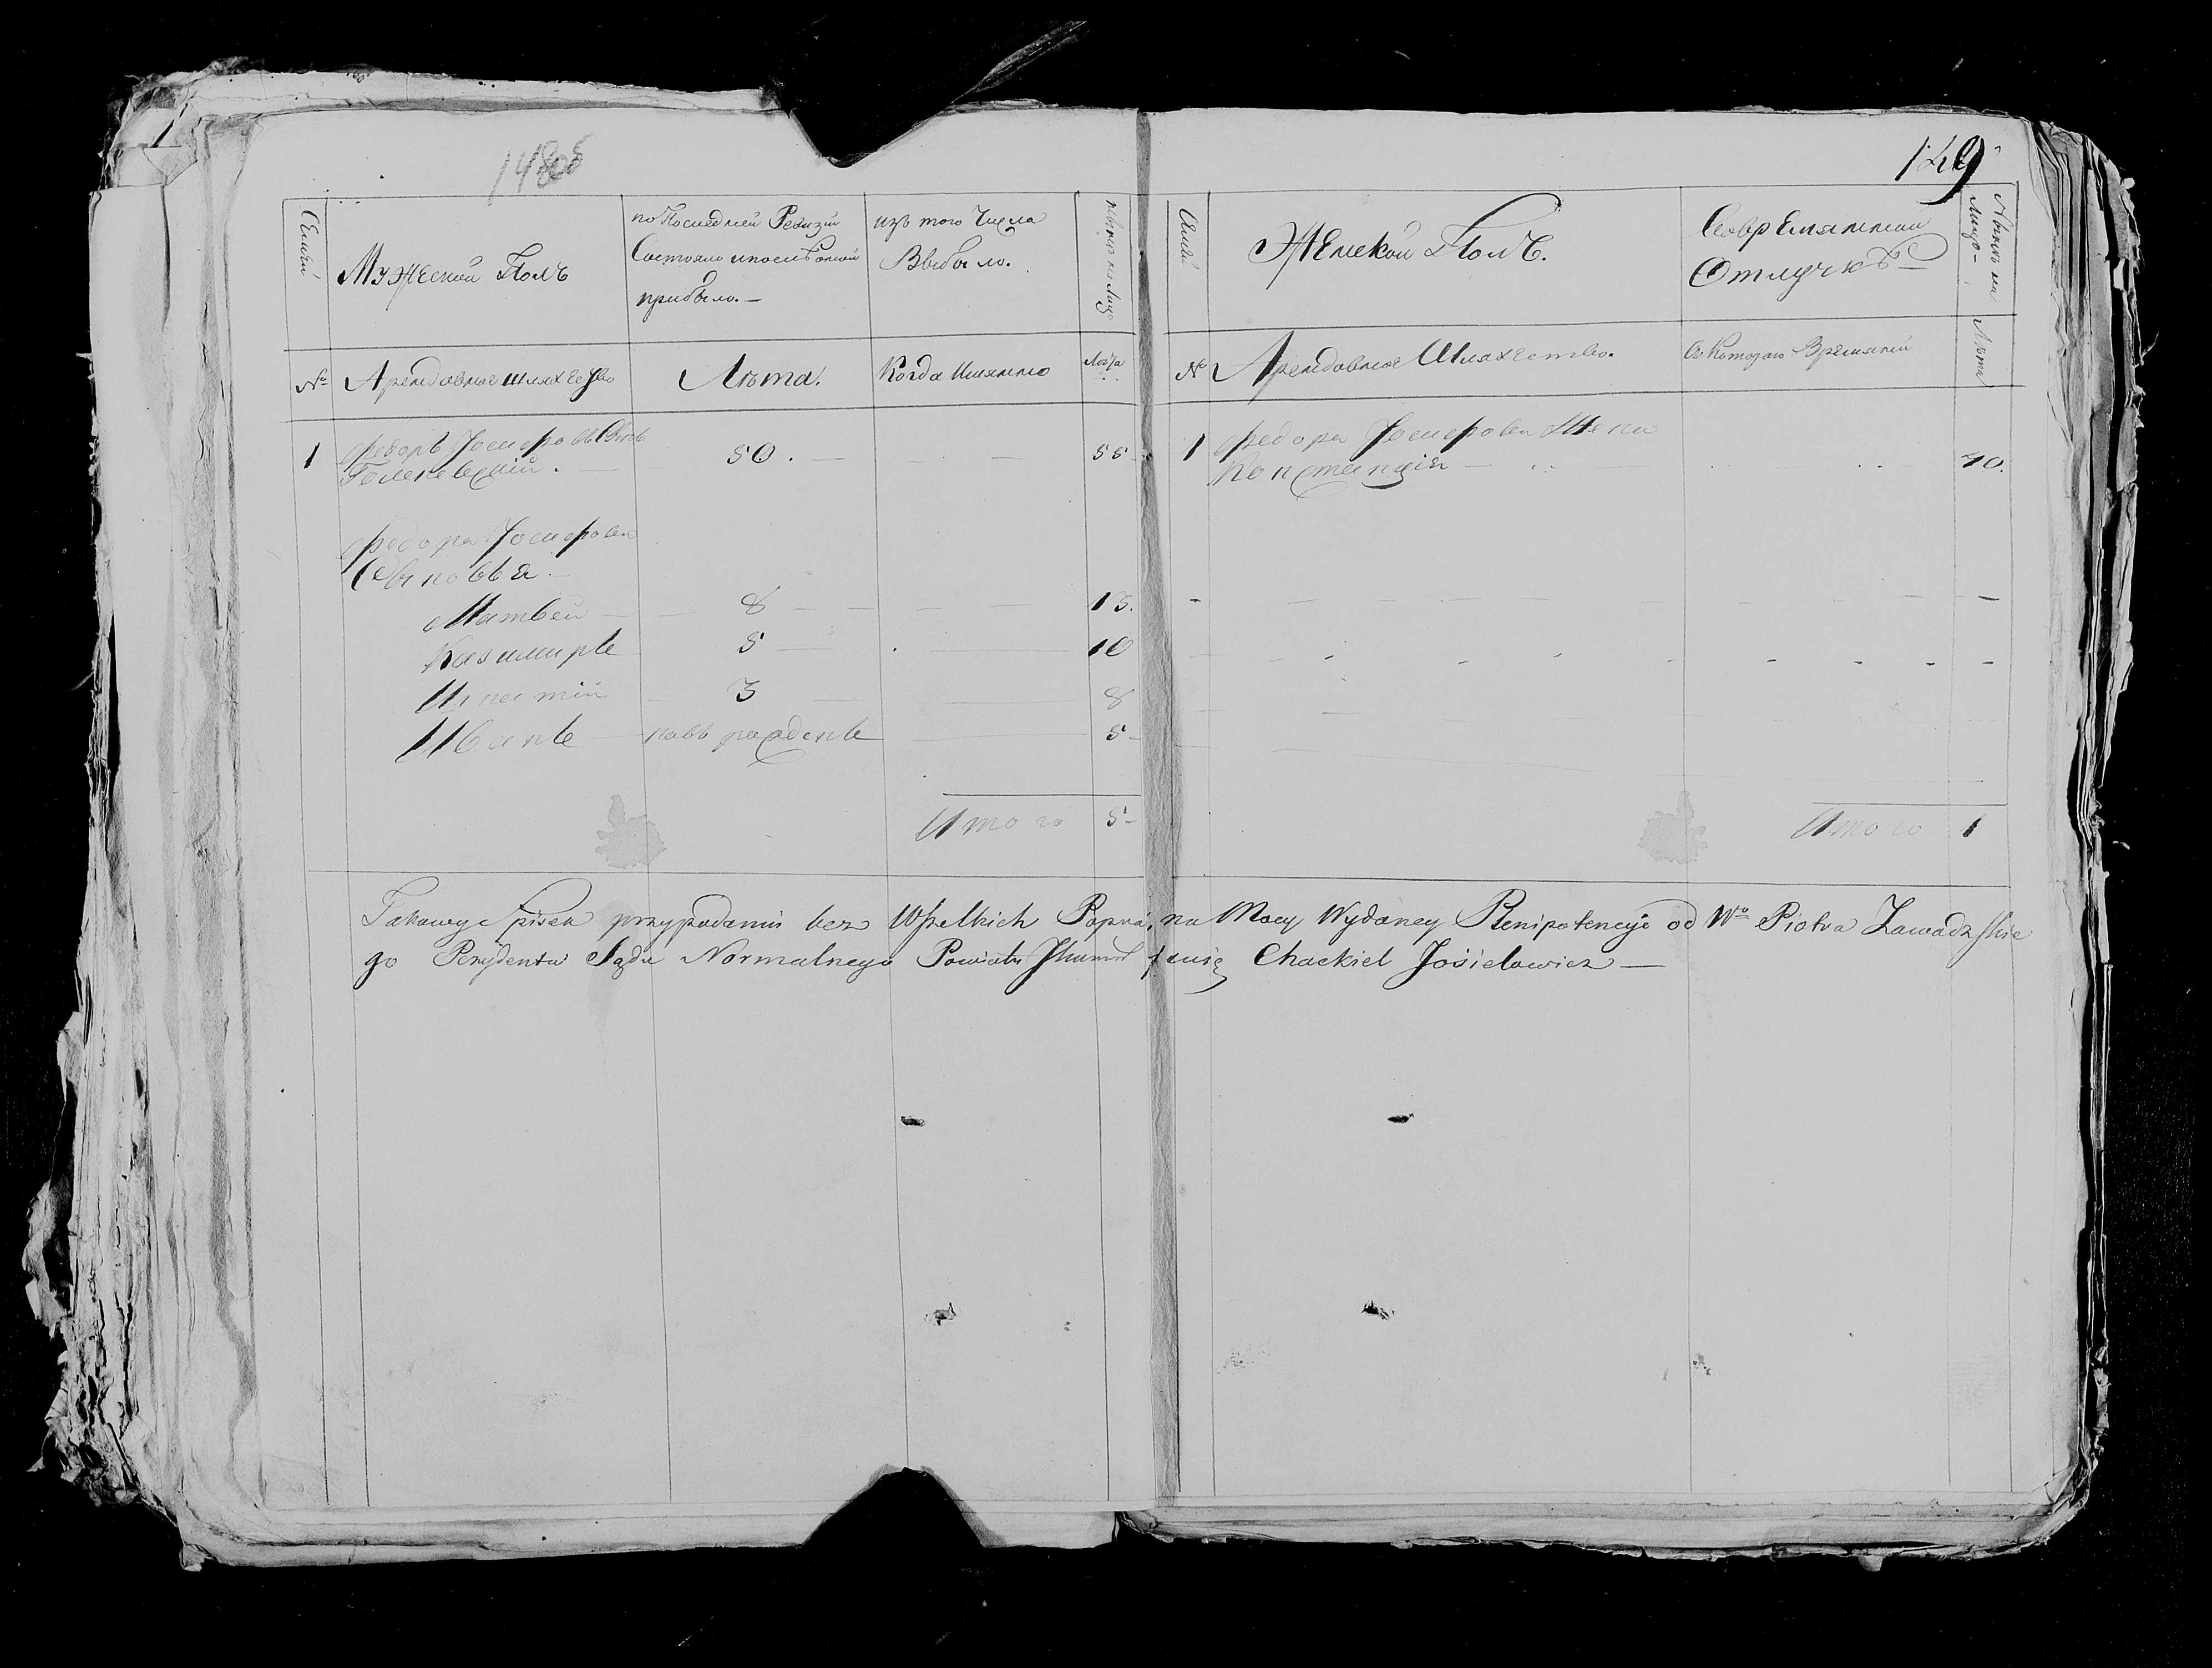 149
Семьи
Мужеской Полъ
по Последней Ревизіи
Состояло и после Оной
прибыло. —
изъ того Числа
Выбыло.
ныне на Лицо
Семьи
Женской Полъ.
Во временной
Отлучкѣ —
Нынѣ на
Лицо —
№ Арендовное шляхество
Лѣта.
Когда Имянно
Лѣта
№ Арендовное Шляхество.
Съ Котораго Времяней
Лѣта
1 Федоръ Іосифовъ Сынъ
Голеневскій. —
50. —
55 —
1 Федора Іосифова Жена
Констанція —
40.
Федора Іосифова
Сыновья. —
Матвей — 8 — 13.
Казимиръ 5 — 10
Игнатій 3 — 8
Иванъ новъ рожденъ 5 —
Итого 5 —
Итого 1
Takowy Spisek przypodaniu bez Wszelkich na Mocy Wydaney Plenipotencyi od Wo Piotra Zawadzskie
go Prezydenta Sądu Normalnego Powiatu Chackiel Josielowicz —